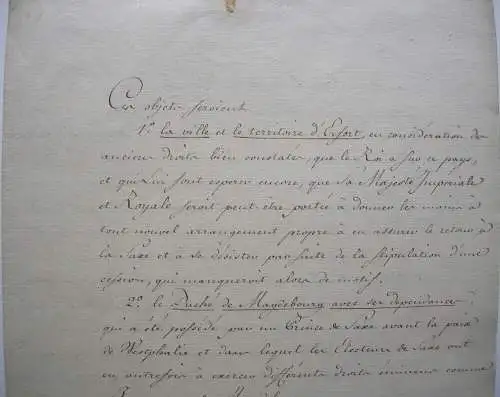 Ces objets seroient
1.º la ville et le territoire d'Erfort, en considération des
anciens droits bien constatés, que le Roi a sur ce pays,
et qui Lui font esperer encore, que Sa Majesté Impériale
et Royale seroit peut être portée à donner les mains à
tout nouvel arrangement propre à en assurer le retour à
la Saxe et à se désister par suite de la stipulation d'une
cession, qui manqueroit alors de motif.
2.º le Duché de Magdebourg avec ses dependances
qui a été possédé par un Prince de Saxe avant la paix
de Westphalie et dans lequel les Electeurs de Saxe ont
eu autrefois à exercer différents droits éminens comme